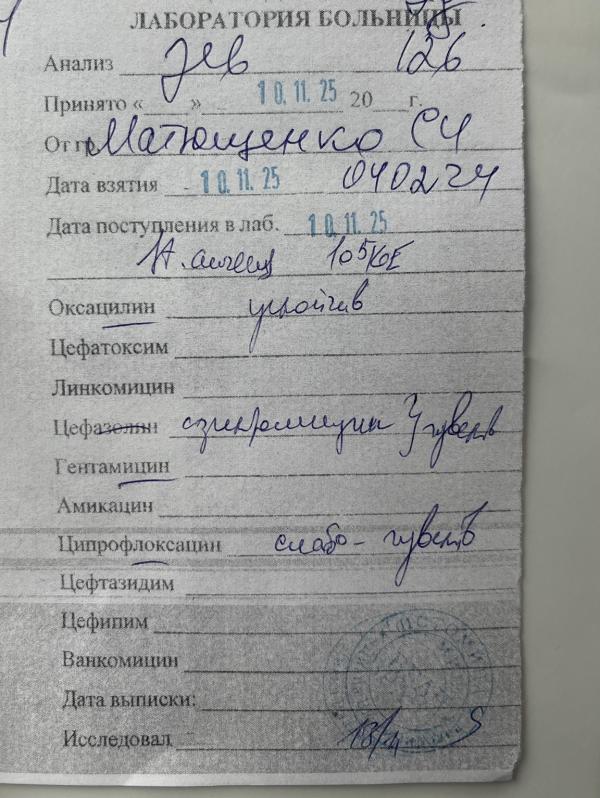 ЛАБОРАТОРИЯ БОЛЬНИЦЫ
Анализ зев 126
Принято « » 10.11.25 20 г.
От гр Матющенко СЧ
Дата взятия 10.11.25 040224
Дата поступления в лаб. 10.11.25
10⁵КОЕ
Оксацилин устойчив
Цефатоксим
Линкомицин
Цефазолин азитромицин } чувств
Гентамицин
Амикацин
Ципрофлоксацин слабо-чувств
Цефтазидим
Цефипим
Ванкомицин
Дата выписки:
Исследовал 13/11